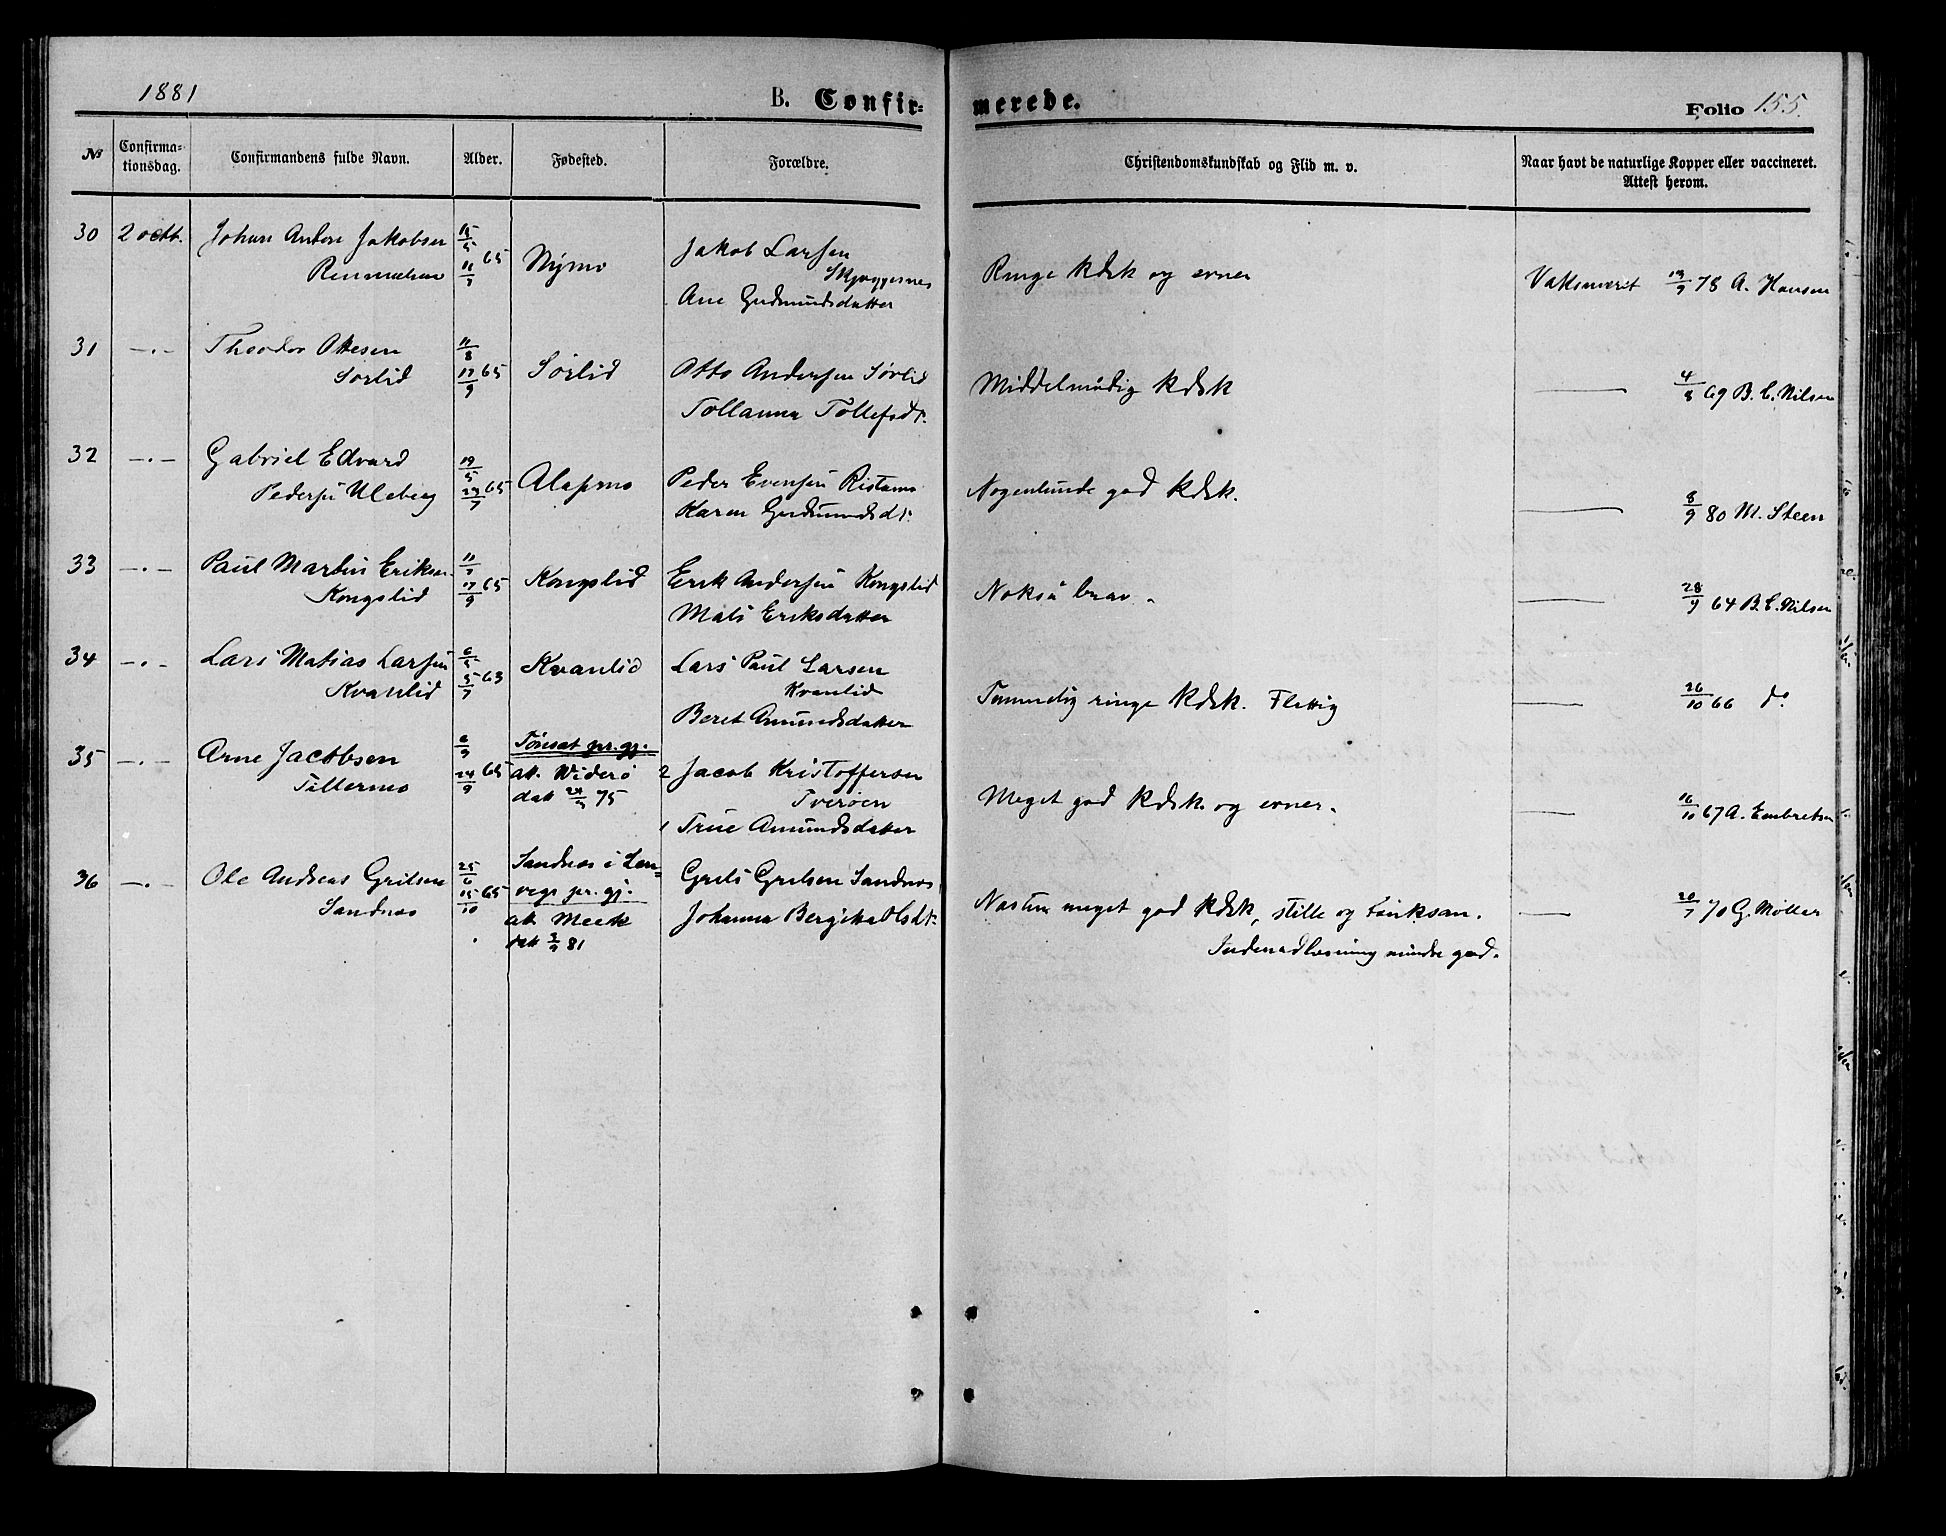 1881 B. Confir- merede. Folio 155.
№ Confirma-tionsdag. Confirmandens fulde Navn. Alder. Fødested. Forældre. Christendomskundskab og Flid m. v. Naar havt de naturlige Kopper eller vaccineret. Attest herom.
30 2 octb. Johan Anton Jakobsen 65 Nymo Jakob Larsen
Ane Gudmundsdatter
Ringe Kdsk og evner
78 A. Hansen
31 —.— Theodor Ottesen
Sørlid 11/8 17/9 65 Sørlid Otto Andersen Sørlid
Tollanna Tollefsdt.
Middelmådig Kdsk
— 4/8 69 B. C. Nilsen
32 —.— Gabriel Edvard
Pedersen Uleberg 19/5 23/7 65 Alapmo Peder Evensen
Karen Gudmundsdt.
Nogenlunde god Kdsk.
— 8/9 80 M. Steen
33 —.— Paul Martin Eriksen
Kongslid 17/9 65 Kongslid Erik Andersen Kongslid
Mali Eriksdatter
Nokså brav.
— 64 B. C. Nilsen
34 —.— Lars Matias Larsen
Kvanlid 5/7 63 Kvanlid Lars Paul Larsen
Kvanlid
Beret Amundsdatter
Temmelig ringe Kdsk. Flittig
— 26/10 66 do
35 —.— Arne Jacobsen
24/9 65 Tönset pr. gj.
at. Widerö
dat 75
2 Jacob Kristoffersen
Tverøen
1 True Amundsdatter
Meget god Kdsk og evner.
— 16/10 67 A. Embretsen
36 —.— Ole Andreas Grilsen
Sandnes 25/6 15/10 65 Sandnes i Len-
vegs pr. gj.
at. Meek
dat 81
Grels Grelsen Sandnes
Johanna Bergitha Olsdt.
Næsten meget god Kdsk, stille og tænksom.
Indenadlæsning mindre god.
— 20/7 70 G. Møller